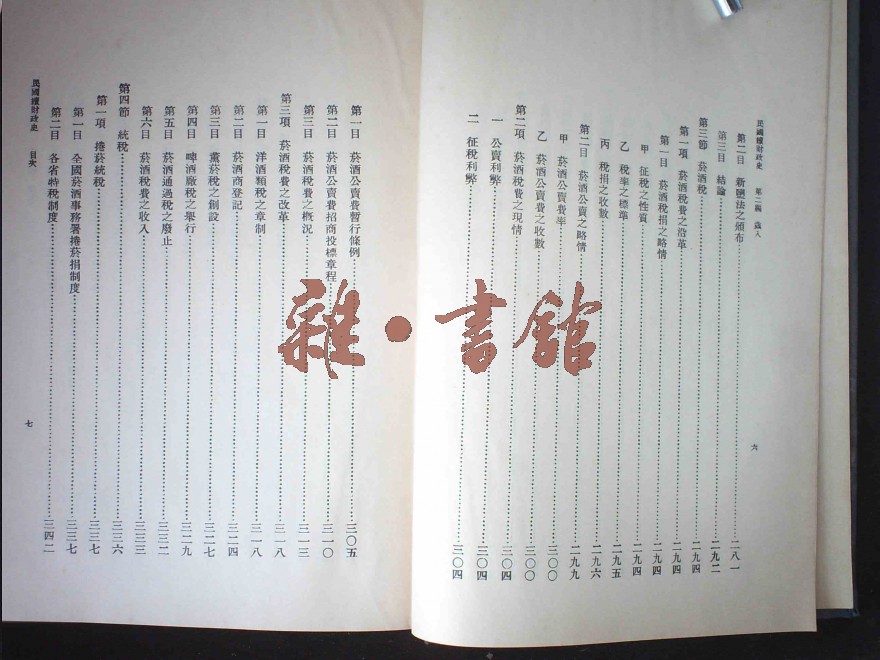 民國續財政史　第二編　歲入
第二目　新鹽法之頒布 二八一
第三目　結論 二九二
第三節　菸酒稅 二九四
第一項　菸酒稅費之沿革 二九四
第一目　菸酒稅捐之略情 二九四
甲　征稅之性質 二九四
乙　稅率之標準 二九五
丙　稅捐之收數 二九六
第二目　菸酒公賣之略情 二九九
甲　菸酒公賣費率 三〇〇
乙　菸酒公賣費之收數 三〇〇
第二項　菸酒稅費之現情 三〇四
一　公賣利弊 三〇四
二　征稅利弊 三〇四
六
第一目　菸酒公賣費暫行條例 三〇五
第二目　菸酒公賣費招商投標章程 三一〇
第三目　菸酒稅費之概況 三一三
第三項　菸酒稅費之改革 三一八
第一目　洋酒類稅之章制 三一八
第二目　菸酒商登記 三二四
第三目　薰菸稅之創設 三二七
第四目　啤酒廠稅之舉行 三二九
第五目　菸酒通過稅之廢止 三三二
第六目　菸酒稅費之收入 三三三
第四節　統稅 三三六
第一項　捲菸統稅 三三七
第一目　全國菸酒事務署捲菸捐制度 三三七
第二目　各省特稅制度 三四二
民國續財政史　目次
七
雜·書館